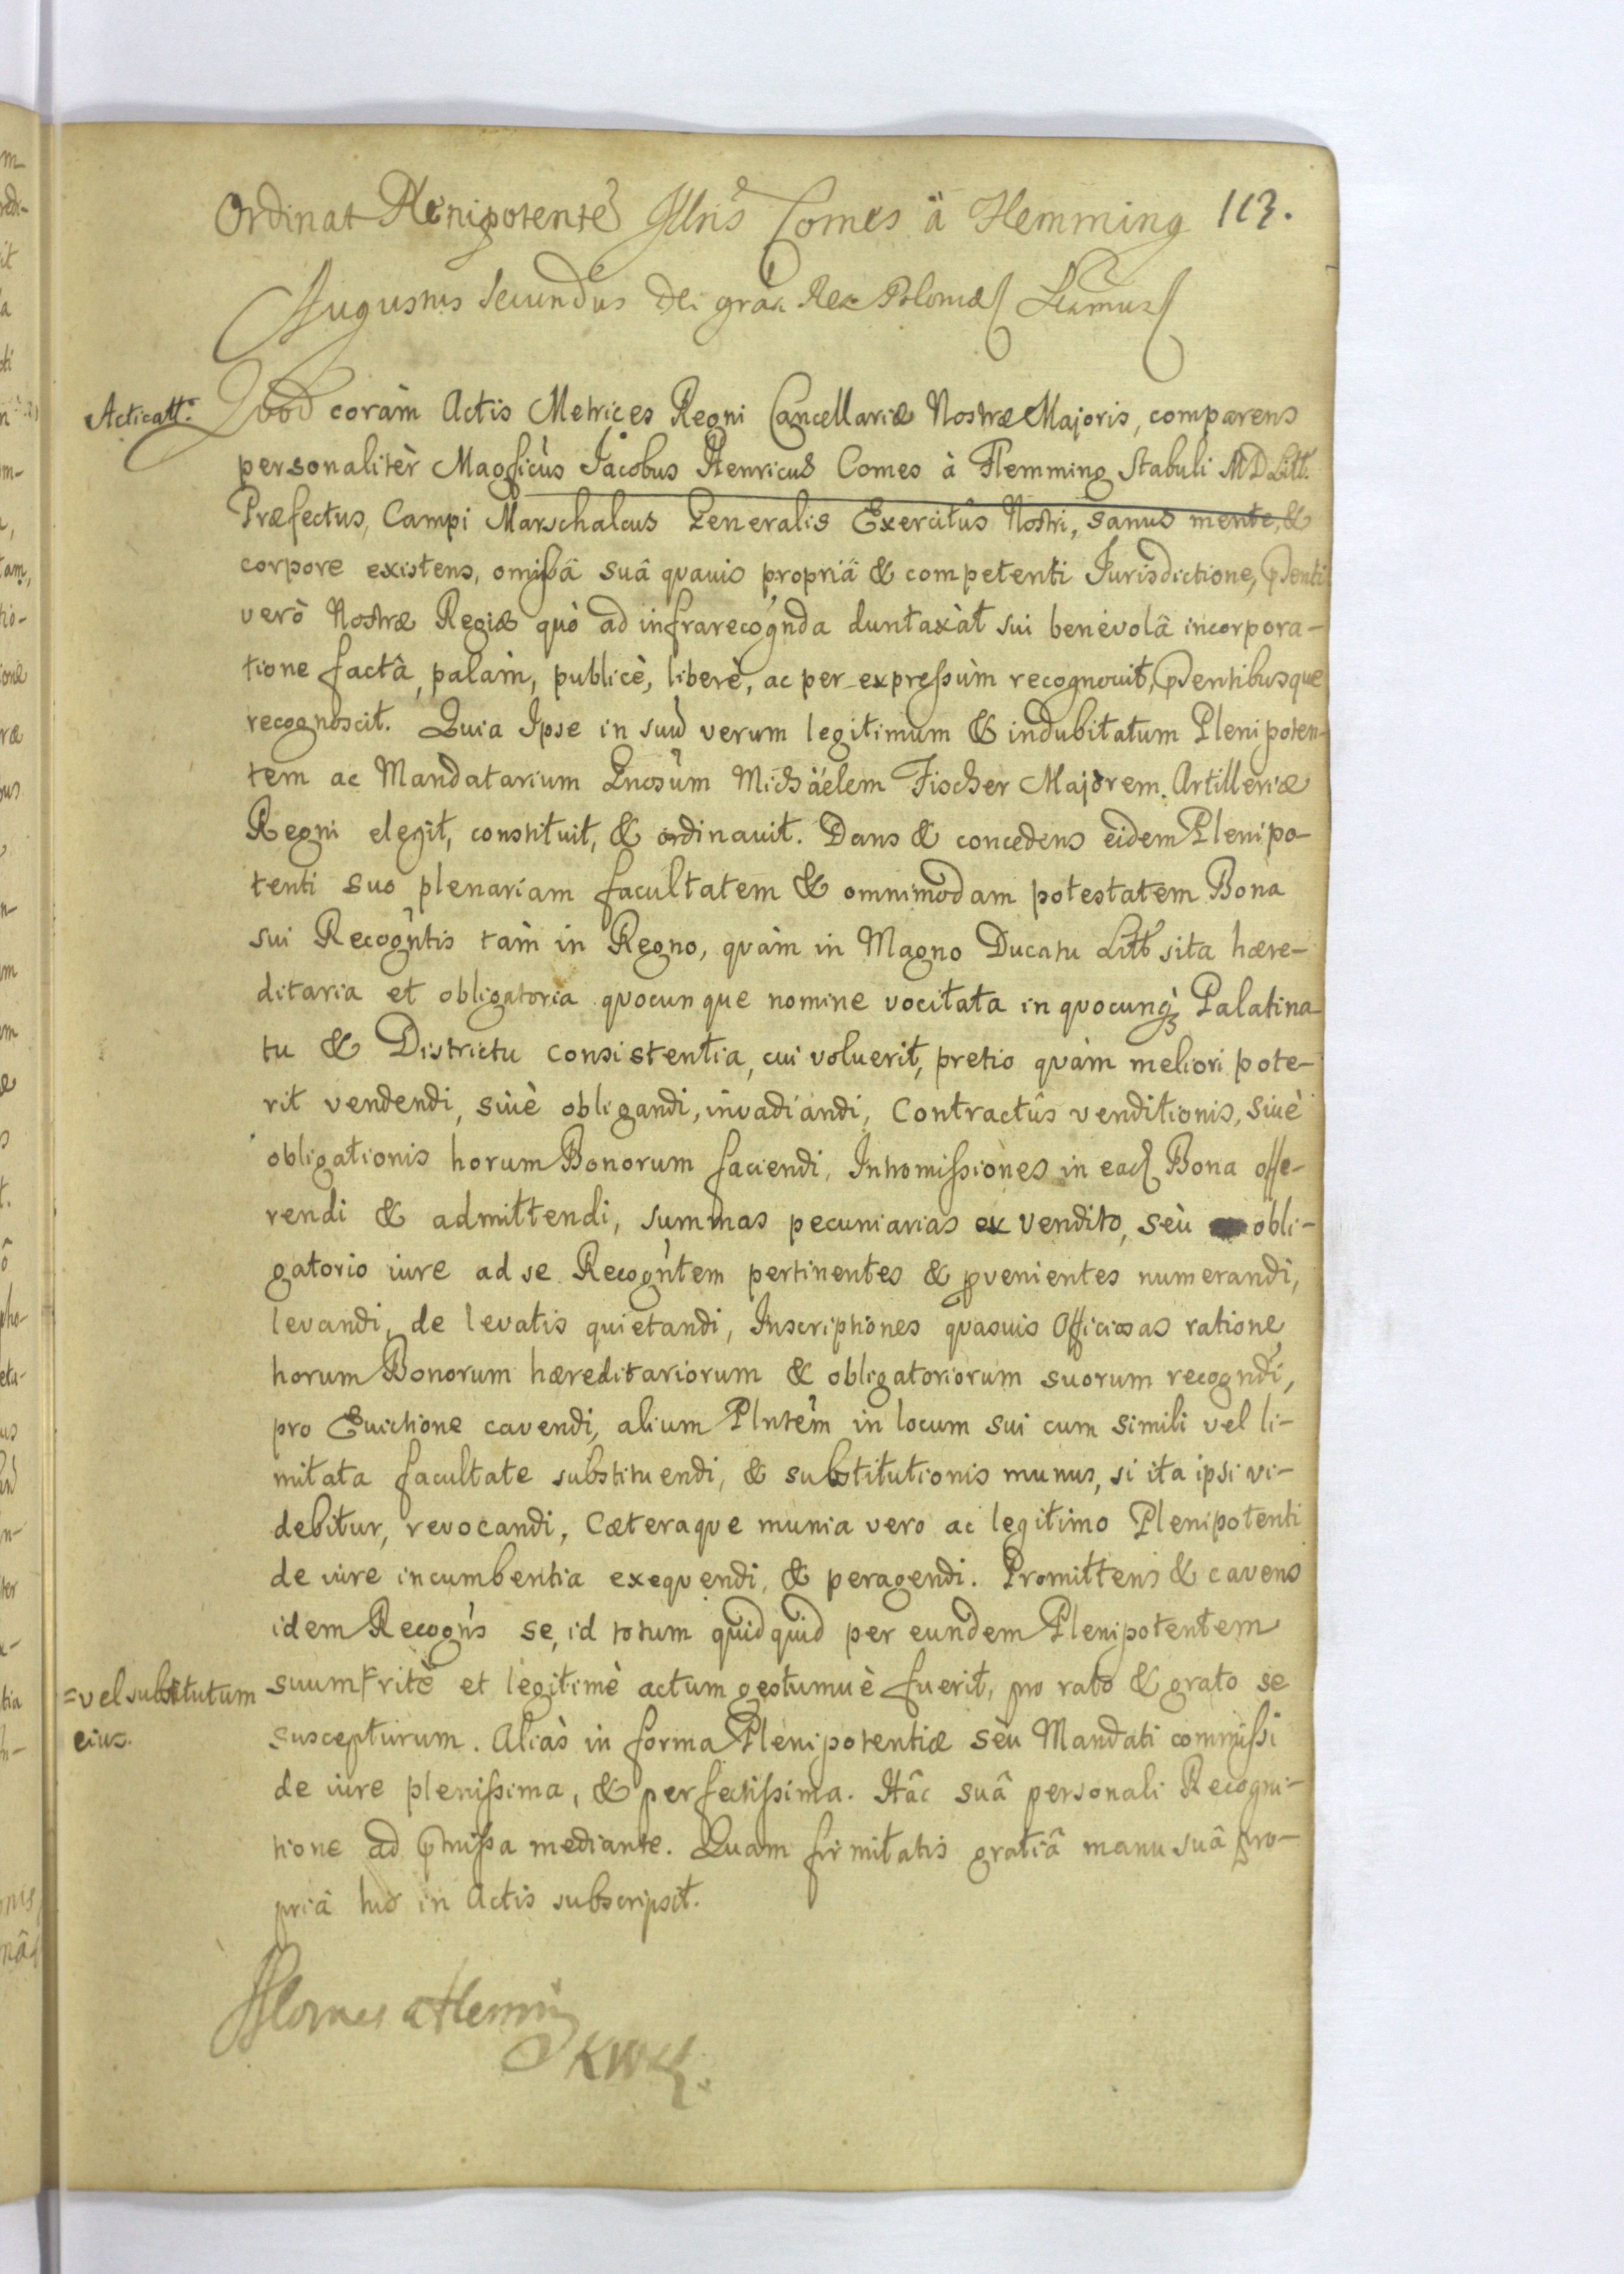 Ordinat Plenipotente Illris Comes à Flemming 113.
Augustus Secundus Dei gràa Rex Poloniæ
Acticatt.
Quod coràm Actis Metrices Regni Cancellariæ Nostræ Majoris, comparens
personalitèr Magficùs Jacobus Henricus Comes à Flemming Stabuli M D Litt.
Præfectus, Campi Marschalcus Generalis Exercitûs Nostri, sanus mente, &
corpore existens, omißâ suâ quauis propriâ & competenti Jurisdictione, pñti
verò Nostræ Regiæ quò ad infrarecognda duntaxàt sui benevolâ incorpora-
tione factâ, palàm, publicè, liberè, ac per expreßùm recognouit, pñtibusque
recognoscit. Quia Ipse in suũ verum legitimum & indubitatum Plenipoten-
tem ac Mandatarium Gnosum Michäelem Fischer Majorem Artilleriæ
Regni elegit, constituit, & ordinauit. Dans & concedens eidem Plenipo-
tenti suo plenariam facultatem & omnimodam potestatem Bona
sui Recogntis tàm in Regno, quàm in Magno Ducatu Litt sita hære-
ditaria et obligatoria quocunque nomine vocitata in quocunq̀ Palatina-
tu & Districtu consistentia, cui voluerit, pretio quàm meliori pote-
rit vendendi, siuè obligandi, invadiandi, Contractûs venditionis, siuè
obligationis horum Bonorum faciendi, Intromißiones in ead Bona offe-
rendi & admittendi, summas pecuniarias ex vendito, seù obli-
gatorio iure ad se Recogntem pertinentes & pvenientes numerandi,
levandi, de levatis quietandi, Inscriptiones quasuis Officiosas ratione
horum Bonorum hæreditariorum & obligatoriorum suorum recogndi,
pro Euictione cavendi, alium Plntem in locum sui cum simili vel li-
mitata facultate substituendi, & substitutionis munus, si ita ipsi vi-
debitur, revocandi, Cæteraque munia vero ac legitimo Plenipotenti
de iure incumbentia exequendi, & peragendi. Promittens & cavens
idem Recogns se, id totum quidquid per eundem Plenipotentem
=vel substitutum
eius.
suum ritè et legitimè actum gestumuè fuerit, pro rato & grato se
suscepturum. Aliàs in forma Plenipotentiæ seu Mandati commißi
de iure plenißima, & perfectißima. Hâc suâ personali Recogni-
tione ad pmißa mediante. Quam firmitatis gratiâ manu suâ pro-
priâ hic in Actis subscripsit.
Comes a Flemming